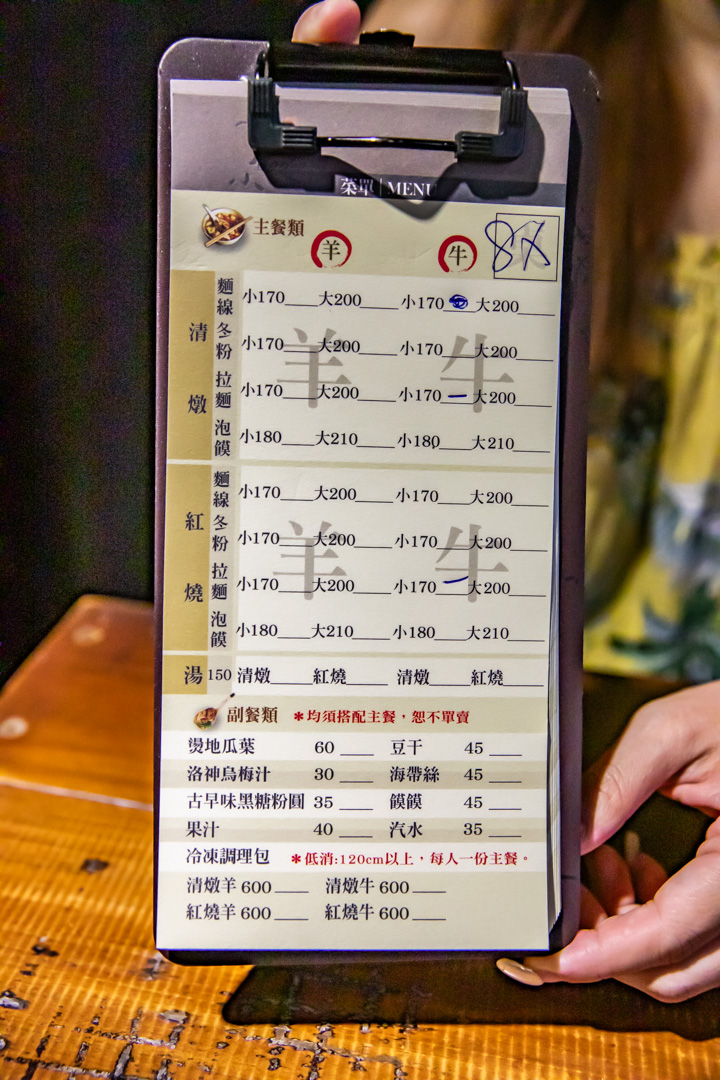 菜單 | MENU
主餐類 羊 牛 8X
清燉
麵線 小170____大200____ 小170____大200____
冬粉 小170____大200____ 小170____大200____
拉麵 小170____大200____ 小170__一__大200____
泡饃 小180____大210____ 小180____大210____
羊 牛
紅燒
麵線 小170____大200____ 小170____大200____
冬粉 小170____大200____ 小170____大200____
拉麵 小170____大200____ 小170__一__大200____
泡饃 小180____大210____ 小180____大210____
羊 牛
湯 150 清燉____ 紅燒____ 清燉____ 紅燒____
副餐類 *均須搭配主餐，恕不單賣
燙地瓜葉 60 ____ 豆干 45 ____
洛神烏梅汁 30 ____ 海帶絲 45 ____
古早味黑糖粉圓 35 ____ 饃饃 45 ____
果汁 40 ____ 汽水 35 ____
冷凍調理包 *低消:120cm以上，每人一份主餐。
清燉羊 600____ 清燉牛 600____
紅燒羊 600____ 紅燒牛 600____